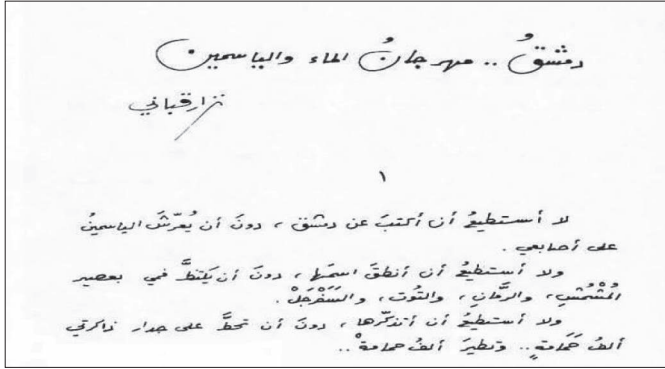 دمشقُ .. مهرجانُ الماء والياسمين
نزار قباني
١
لا أستطيعُ أن أكتبَ عن دمشق ، دونَ أن يُعرّشَ الياسمينُ
على أصابعي .
ولا أستطيعُ أن أنطقَ اسمَها ، دونَ أن يكتظَّ فمي بعصير
المُشْمُشِ ، والرمّانِ ، والتُوت ، والسَفَرْجَلْ .
ولا أستطيعُ أن أتذكّرَها ، دونَ أن تحطَّ على جدار ذاكرتي
ألفُ حَمَامَةٍ .. وتطيرَ ألفُ حمامةْ ..